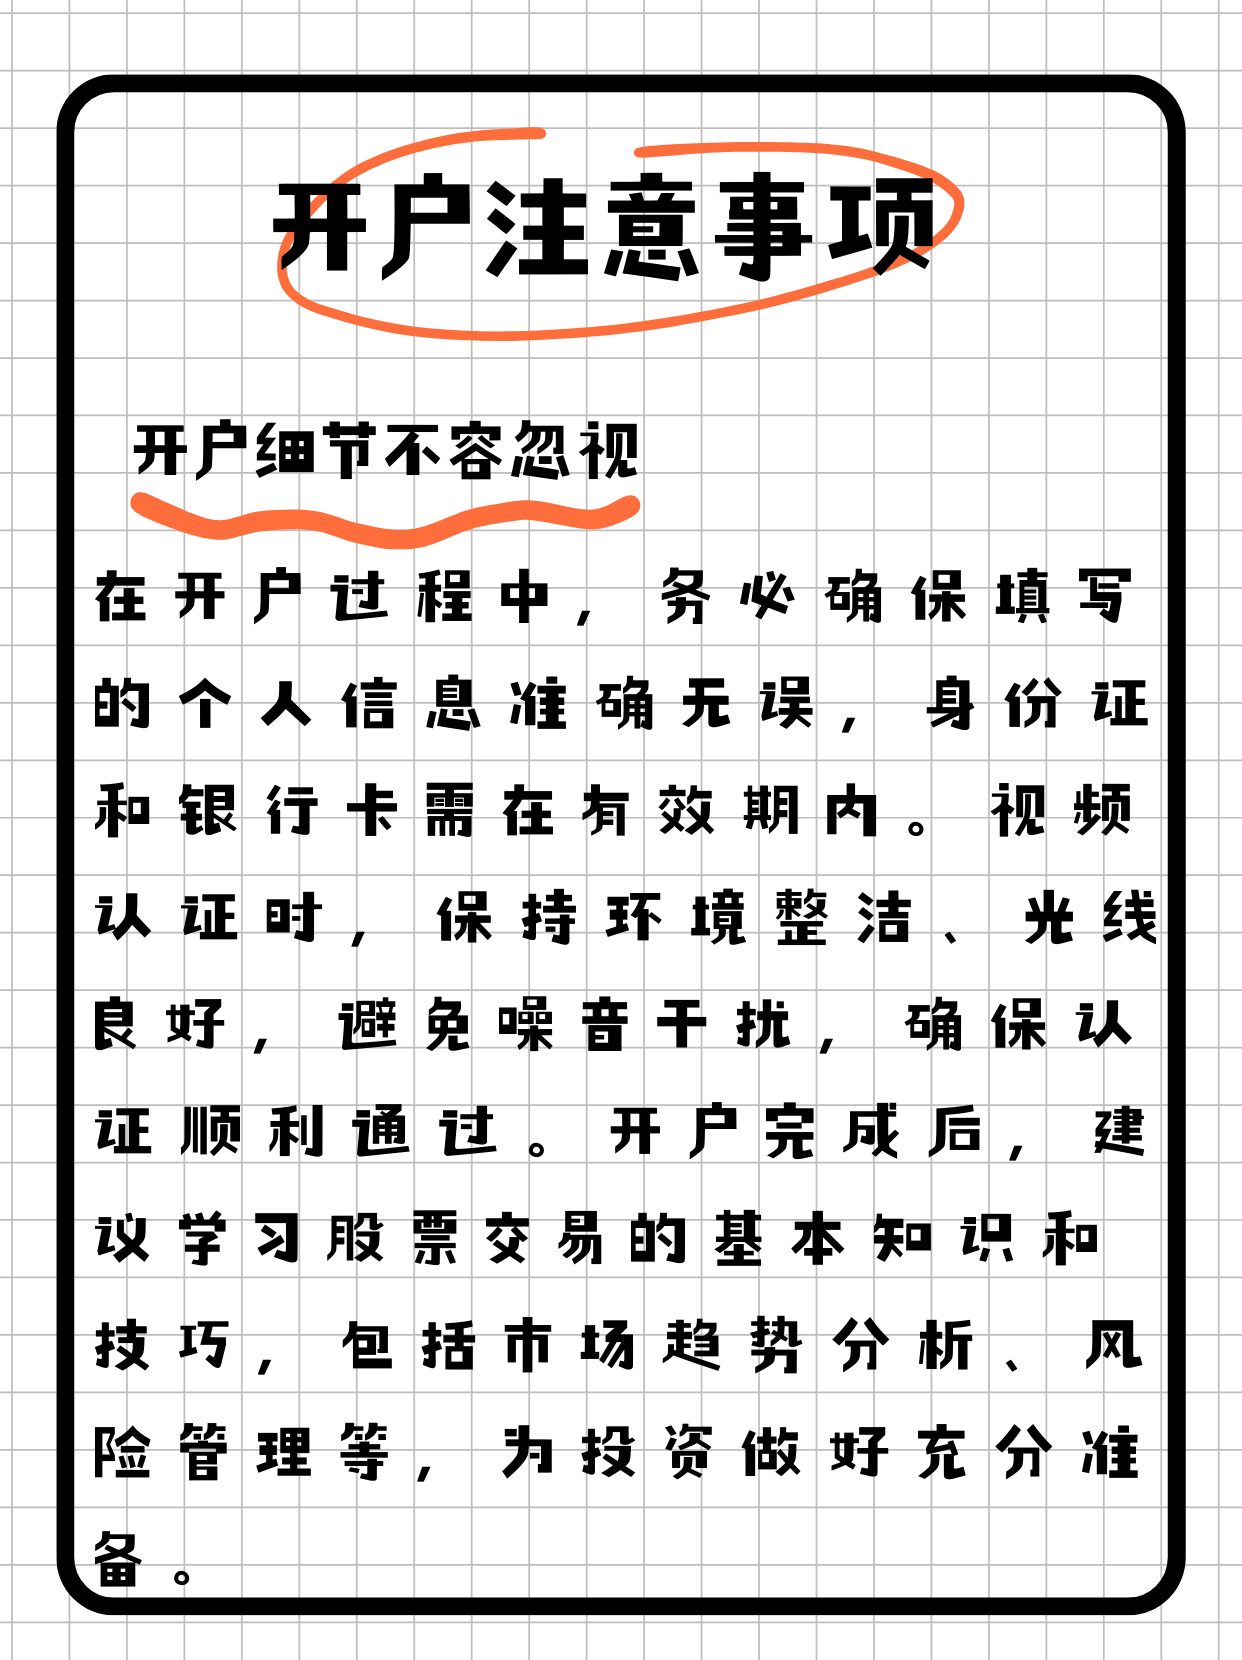 开户注意事项
开户细节不容忽视
在开户过程中,务必确保填写
的个人信息准确无误,身份证
和银行卡需在有效期内。视频
认证时,保持环境整洁、光线
良好,避免噪音干扰,确保认
证顺利通过。开户完成后,建
议学习股票交易的基本知识和
技巧,包括市场趋势分析、风
险管理等,为投资做好充分准
备。